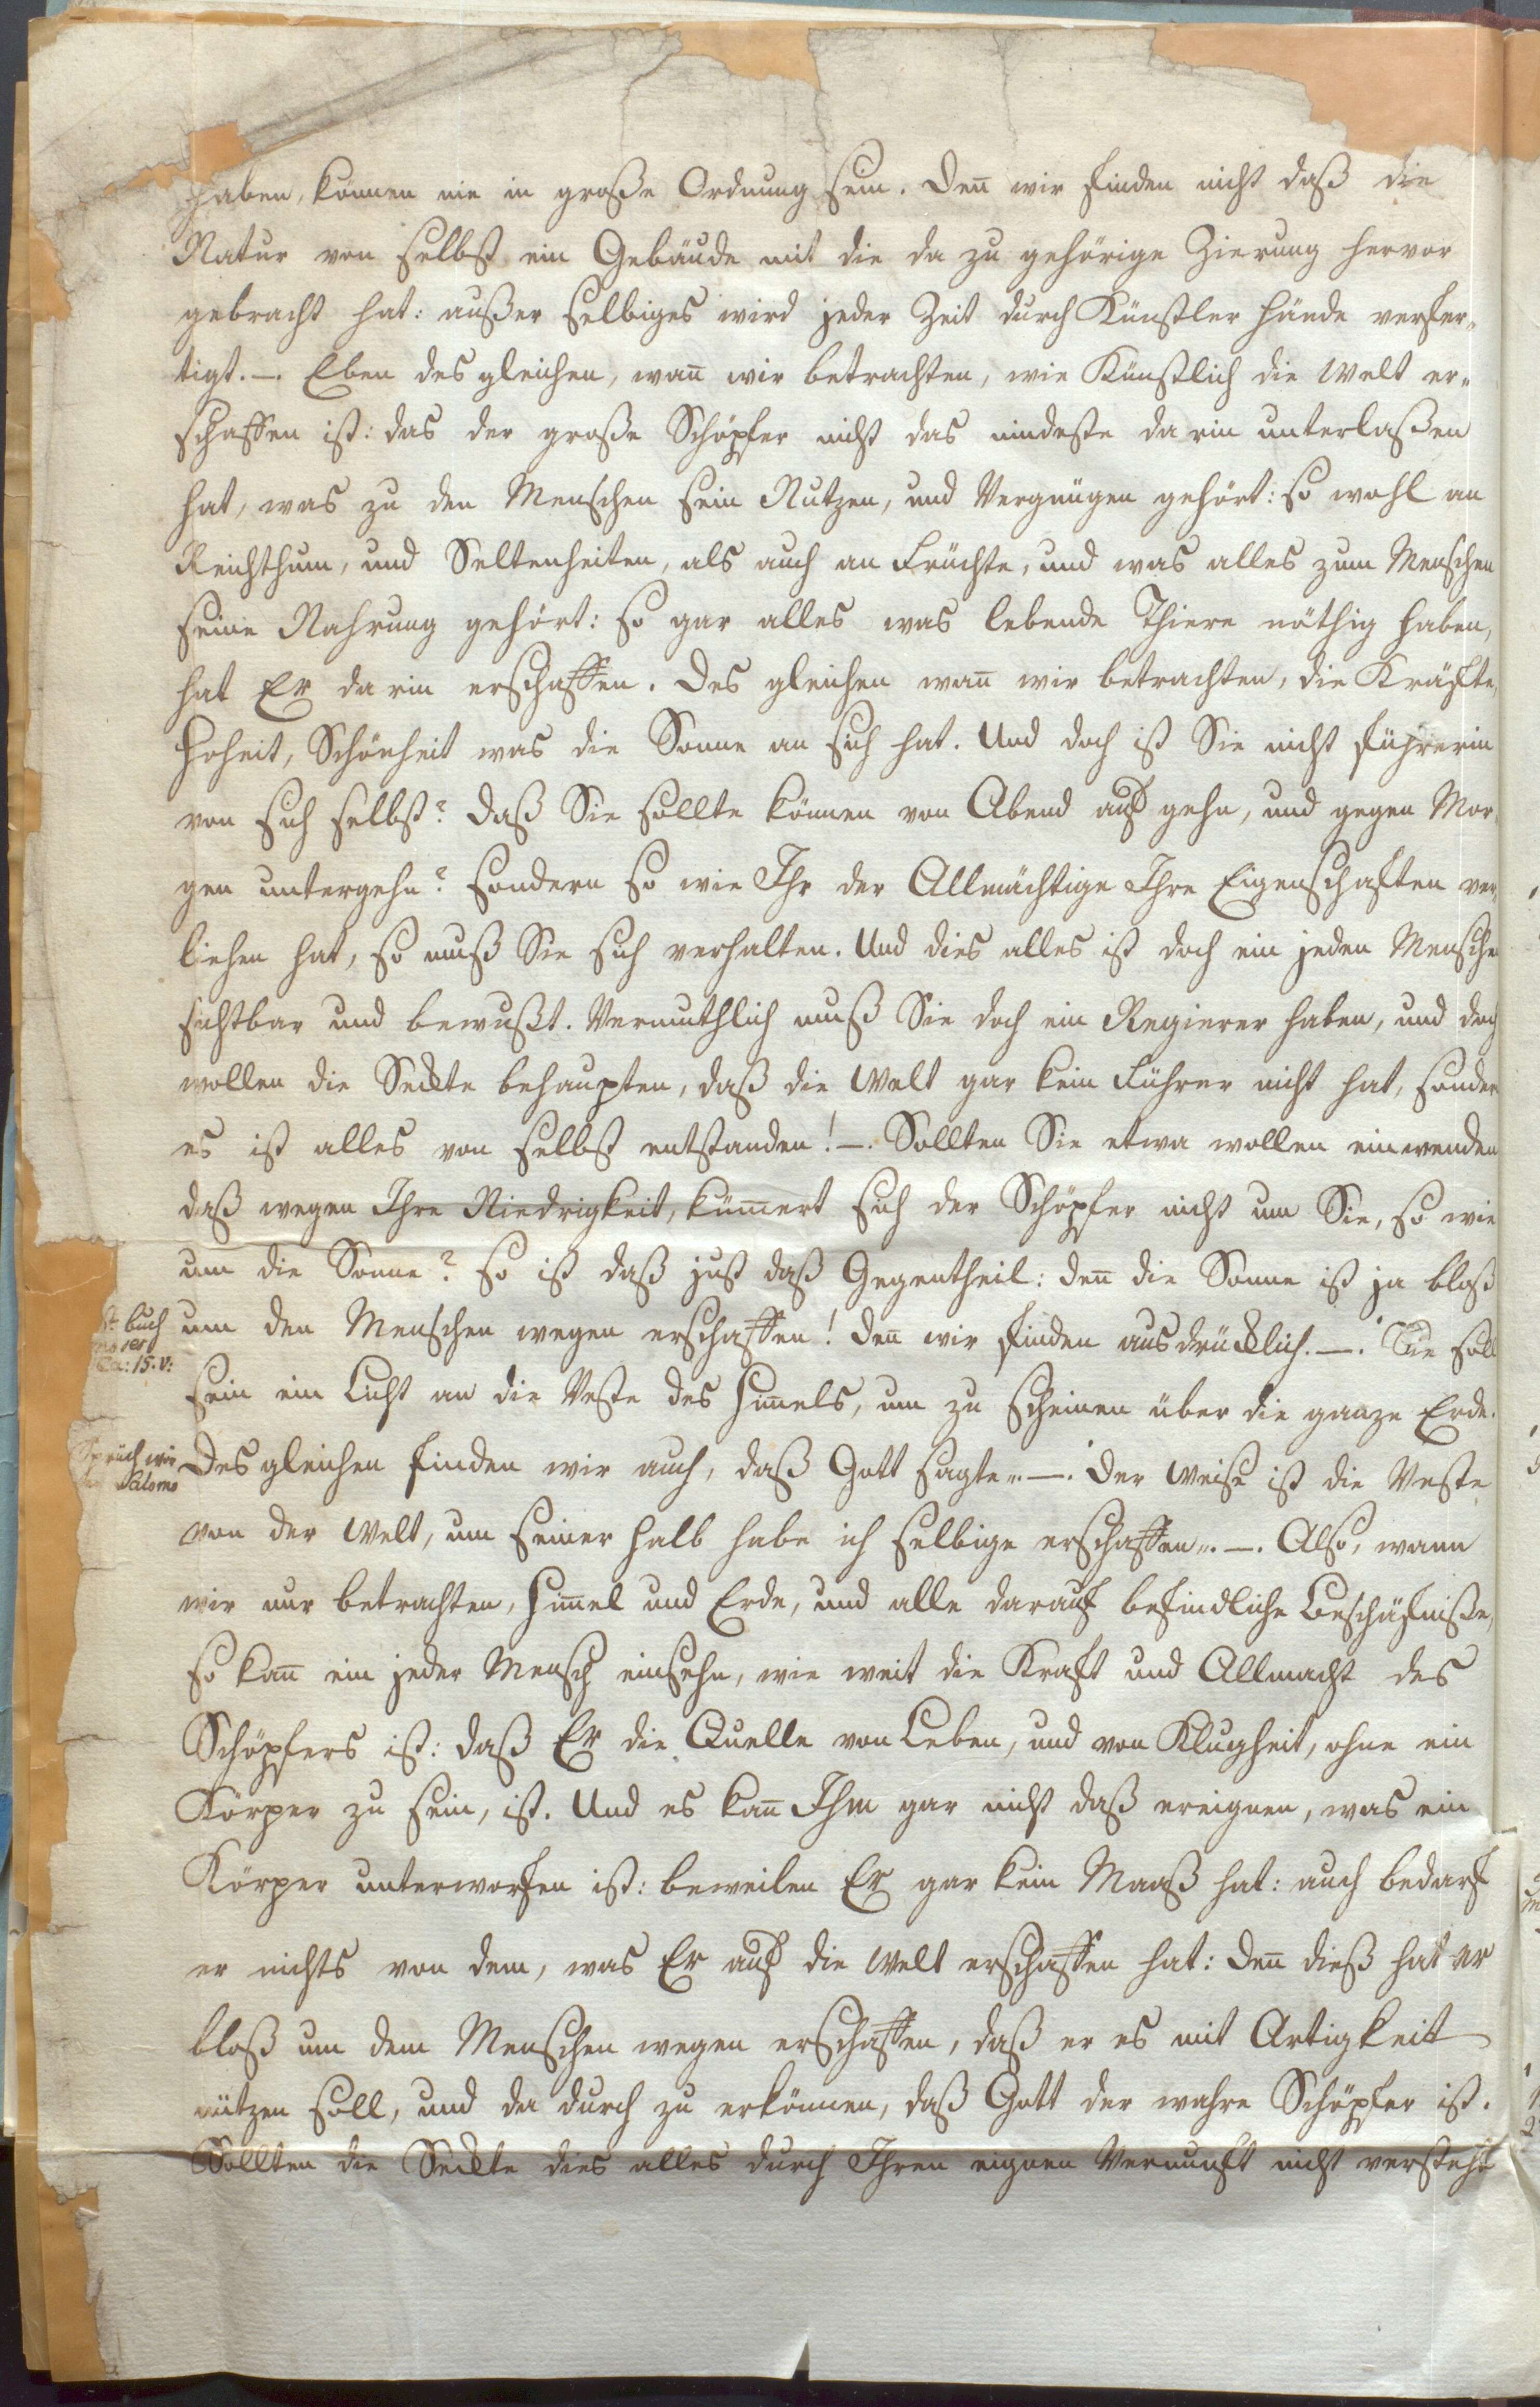 haben, können nie in große Ordnung sein. Den̄ wir finden nicht daß die
Natur von selbst ein Gebäude mit die da zu gehörige Zierung hervor
gebracht hat: außer selbiges wird jeder Zeit durch Künstler Hände verfer-
tigt. —. Eben des gleichen, wan̄ wir betrachten, wie Künstlich die Welt er-
schaffen ist: das der große Schöpfer nicht das mindeste da rin unterlaßen
hat, was zu den Menschen sein Nutzen, und Vergnügen gehört: so wohl an
Reichthum, und Seltenheiten, als auch an Früchte, und was alles zum Menschen
seine Nahrung gehört: so gar alles was lebende Thiere nöthig haben,
hat Er da rin erschaffen. Des gleichen wan̄ wir betrachten, die Kräfte,
Hoheit, Schönheit was die Sonne an sich hat. Und doch ist Sie nicht Führerin
von sich selbst? daß Sie sollte können von Abend auf gehn, und gegen Mor
gen untergehn? sondern so wie Ihr der Allmächtige Ihre Eigenschaften ver-
liehen hat, so muß Sie sich verhalten. Und dies alles ist doch ein jeden Mensche
sichtbar und bewußt. Vermuthlich muß Sie doch ein Regierer haben, und doch
wollen die Seckte behaupten, daß die Welt gar kein Führer nicht hat, sonder
es ist alles von selbst entstanden! —. Sollten Sie etwa wollen einwenden
daß wegen Ihre Niedrigkeit, küm̄ert sich der Schöpfer nicht um Sie, so wie
um die Sonne? so ist daß just daß Gegentheil: den̄ die Sonne ist ja bloß
t: buch
moses
Ca: 15. v:
um den Menschen wegen erschaffen! den̄ wir finden ausdrücklich. —. Sie soll
sein ein Licht an die Veste des Him̄els, um zu scheinen über die ganze Erde.
Sprüch wör
Salomo
Des gleichen finden wir auch, daß Gott sagte„ —. Der Weise ist die Veste
von der Welt, um seiner halb habe ich selbige erschaffen„. —. Also, wann
wir nur betrachten, Him̄el und Erde, und alle darauf befindliche Beschäfniße,
so kan̄ ein jeder Mensch einsehn, wie weit die Kraft und Allmacht des
Schöpfers ist: daß Er die Quelle von Leben, und von Klugheit, ohne ein
Körper zu sein, ist. Und es kan̄ Ihm gar nicht daß ereignen, was ein
Körper unterworfen ist: beweilen Er gar kein Maaß hat: auch bedarf
er nichts von dem, was Er auf die Welt erschaffen hat: den̄ dieß hat er
bloß um dem Menschen wegen erschaffen, daß er es mit Artigkeit
nützen soll, und da durch zu erkönnen, daß Gott der wahre Schöpfer ist.
Sollten die Seckte dies alles durch Ihren eignen Vernunft nicht versteht